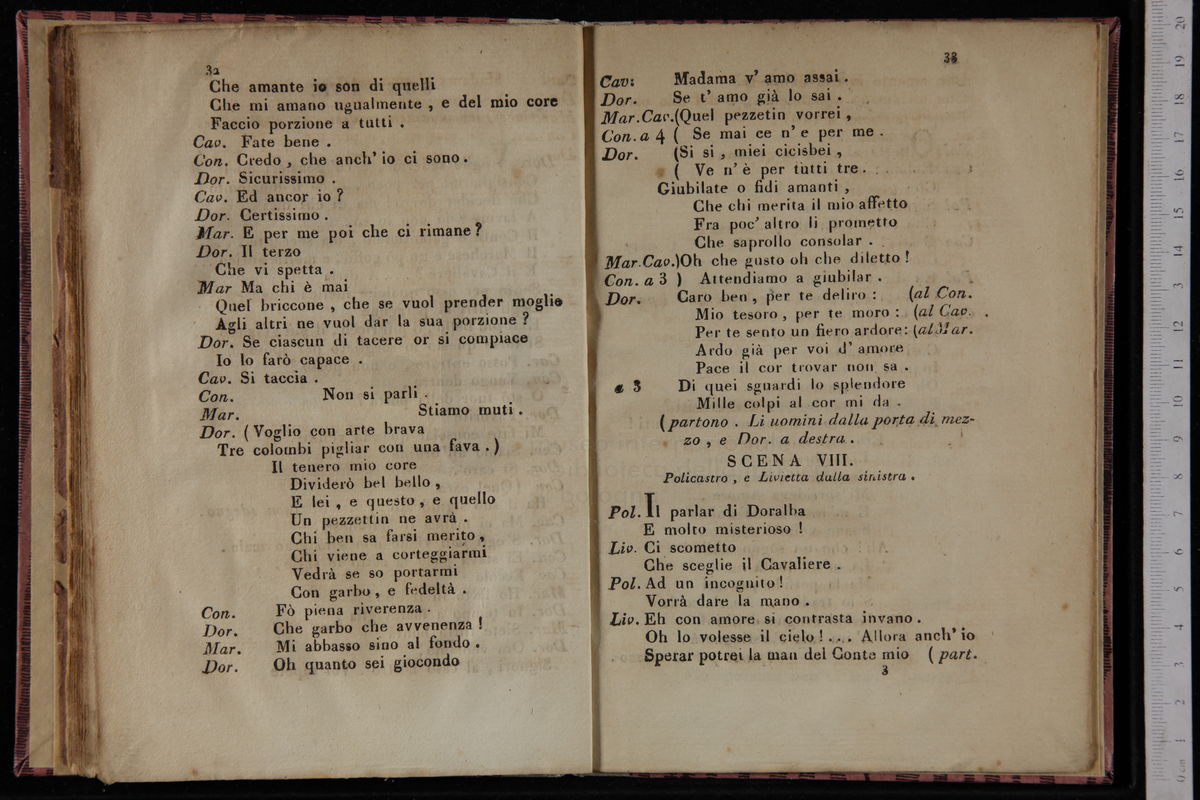 32
Che amante io son di quelli
Che mi amano ugualmente , e del mio core
Faccio porzione a tutti .
Cav. Fate bene .
Con. Credo , che anch' io ci sono .
Dor. Sicurissimo .
Cav. Ed ancor io ?
Dor. Certissimo .
Mar. E per me poi che ci rimane ?
Dor. Il terzo
Che vi spetta .
Mar Ma chi è mai
Quel briccone , che se vuol prender moglie
Agli altri ne vuol dar la sua porzione ?
Dor. Se ciascun di tacere or si compiace
Io lo farò capace .
Cav. Si taccia .
Con. Non si parli .
Mar. Stiamo muti .
Dor. ( Voglio con arte brava
Tre colombi pigliar con una fava . )
Il tenero mio core
Dividerò bel bello ,
E lei , e questo , e quello
Un pezzettin ne avrà .
Chi ben sa farsi merito ,
Chi viene a corteggiarmi
Vedrà se so portarmi
Con garbo , e fedeltà .
Con. Fò piena riverenza .
Dor. Che garbo che avvenenza !
Mar. Mi abbasso sino al fondo .
Dor. Oh quanto sei giocondo
33
Cav: Madama v' amo assai .
Dor. Se t' amo già lo sai .
Mar.Cav.(Quel pezzetin vorrei ,
Con. a 4 ( Se mai ce n' e per me .
Dor. (Si si , miei cicisbei ,
( Ve n' è per tutti tre .
Giubilate o fidi amanti ,
Che chi merita il mio affetto
Fra poc' altro li prometto
Che saprollo consolar .
Mar.Cav.)Oh che gusto oh che diletto !
Con. a 3 ) Attendiamo a giubilar .
Dor. Caro ben , per te deliro : (al Con.
Mio tesoro , per te moro : (al Cav.
Per te sento un fiero ardore: (al Mar.
Ardo già per voi d' amore
Pace il cor trovar non sa .
a 3 Di quei sguardi lo splendore
Mille colpi al cor mi da .
(partono . Li uomini dalla porta di mez-
zo , e Dor. a destra .
SCENA VIII.
Policastro , e Livietta dalla sinistra .
Pol. Il parlar di Doralba
E molto misterioso !
Liv. Ci scometto
Che sceglie il Cavaliere .
Pol. Ad un incognito !
Vorrà dare la mano .
Liv. Eh con amore si contrasta invano .
Oh lo volesse il cielo ! .... Allora anch' io
Sperar potrei la man del Conte mio ( part.
3